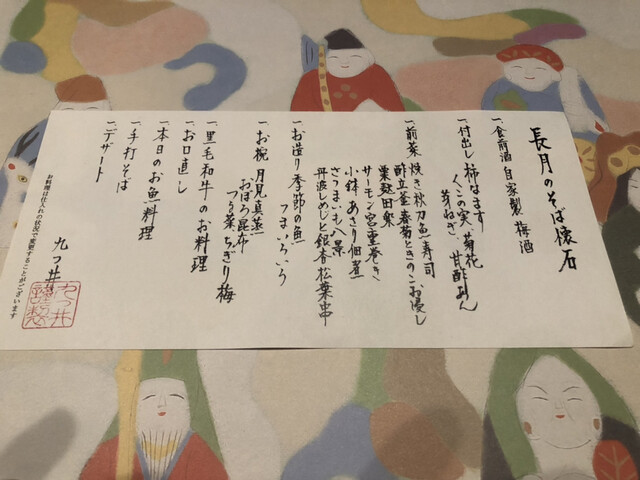 長月のそば懐石
一、食前酒 自家製 梅酒
一、付出し 柿なます
くこの実、菊花
芽ねぎ、甘酢あん
一、前菜 焼き秋刀魚寿司
酢立釜春菊ときのこお浸し
粟麩田楽
サーモン宮重巻き
小鉢 あさり佃煮
さつまいも八景
丹波しめじと銀杏松葉串
一、お造り 季節の魚
つまいろいろ
一、お椀 月見真蒸
おぼろ昆布
つる菜 ちぎり梅
一、黒毛和牛のお料理
一、お口直し
一、本日のお魚料理
一、手打そば
一、デザート
お料理は仕入れの状況で変更することがございます
九つ井